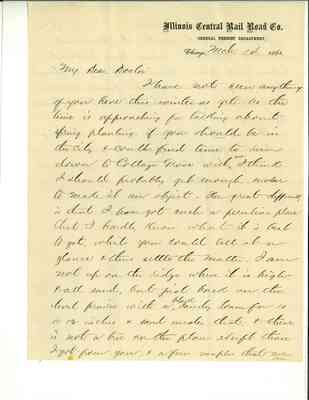 Illinois Central Rail Road Co.
GENERAL FREIGHT DEPARTMENT,
Chicago, Mch 186
My Dear Doctor
I have not seen anything
of you here this winter as yet. As the
time is approaching for looking about
spring planting if you should be in
the city & could find time to run
down to Cottage Grove with me I think
I should probably get enough
to make it an object. The great difficulty
is that I have got such a peculiar place
that I hardly know what it is best
to get, what you could tell at a
glance & thus settle the matter. I am
not up on the ridge where it is higher
& all sand, but just back on the
level prairie with a black sandy loam for 10
or 12 inches & sand under that, & there
is not a tree on the place except those
I got from you, & a few maples that